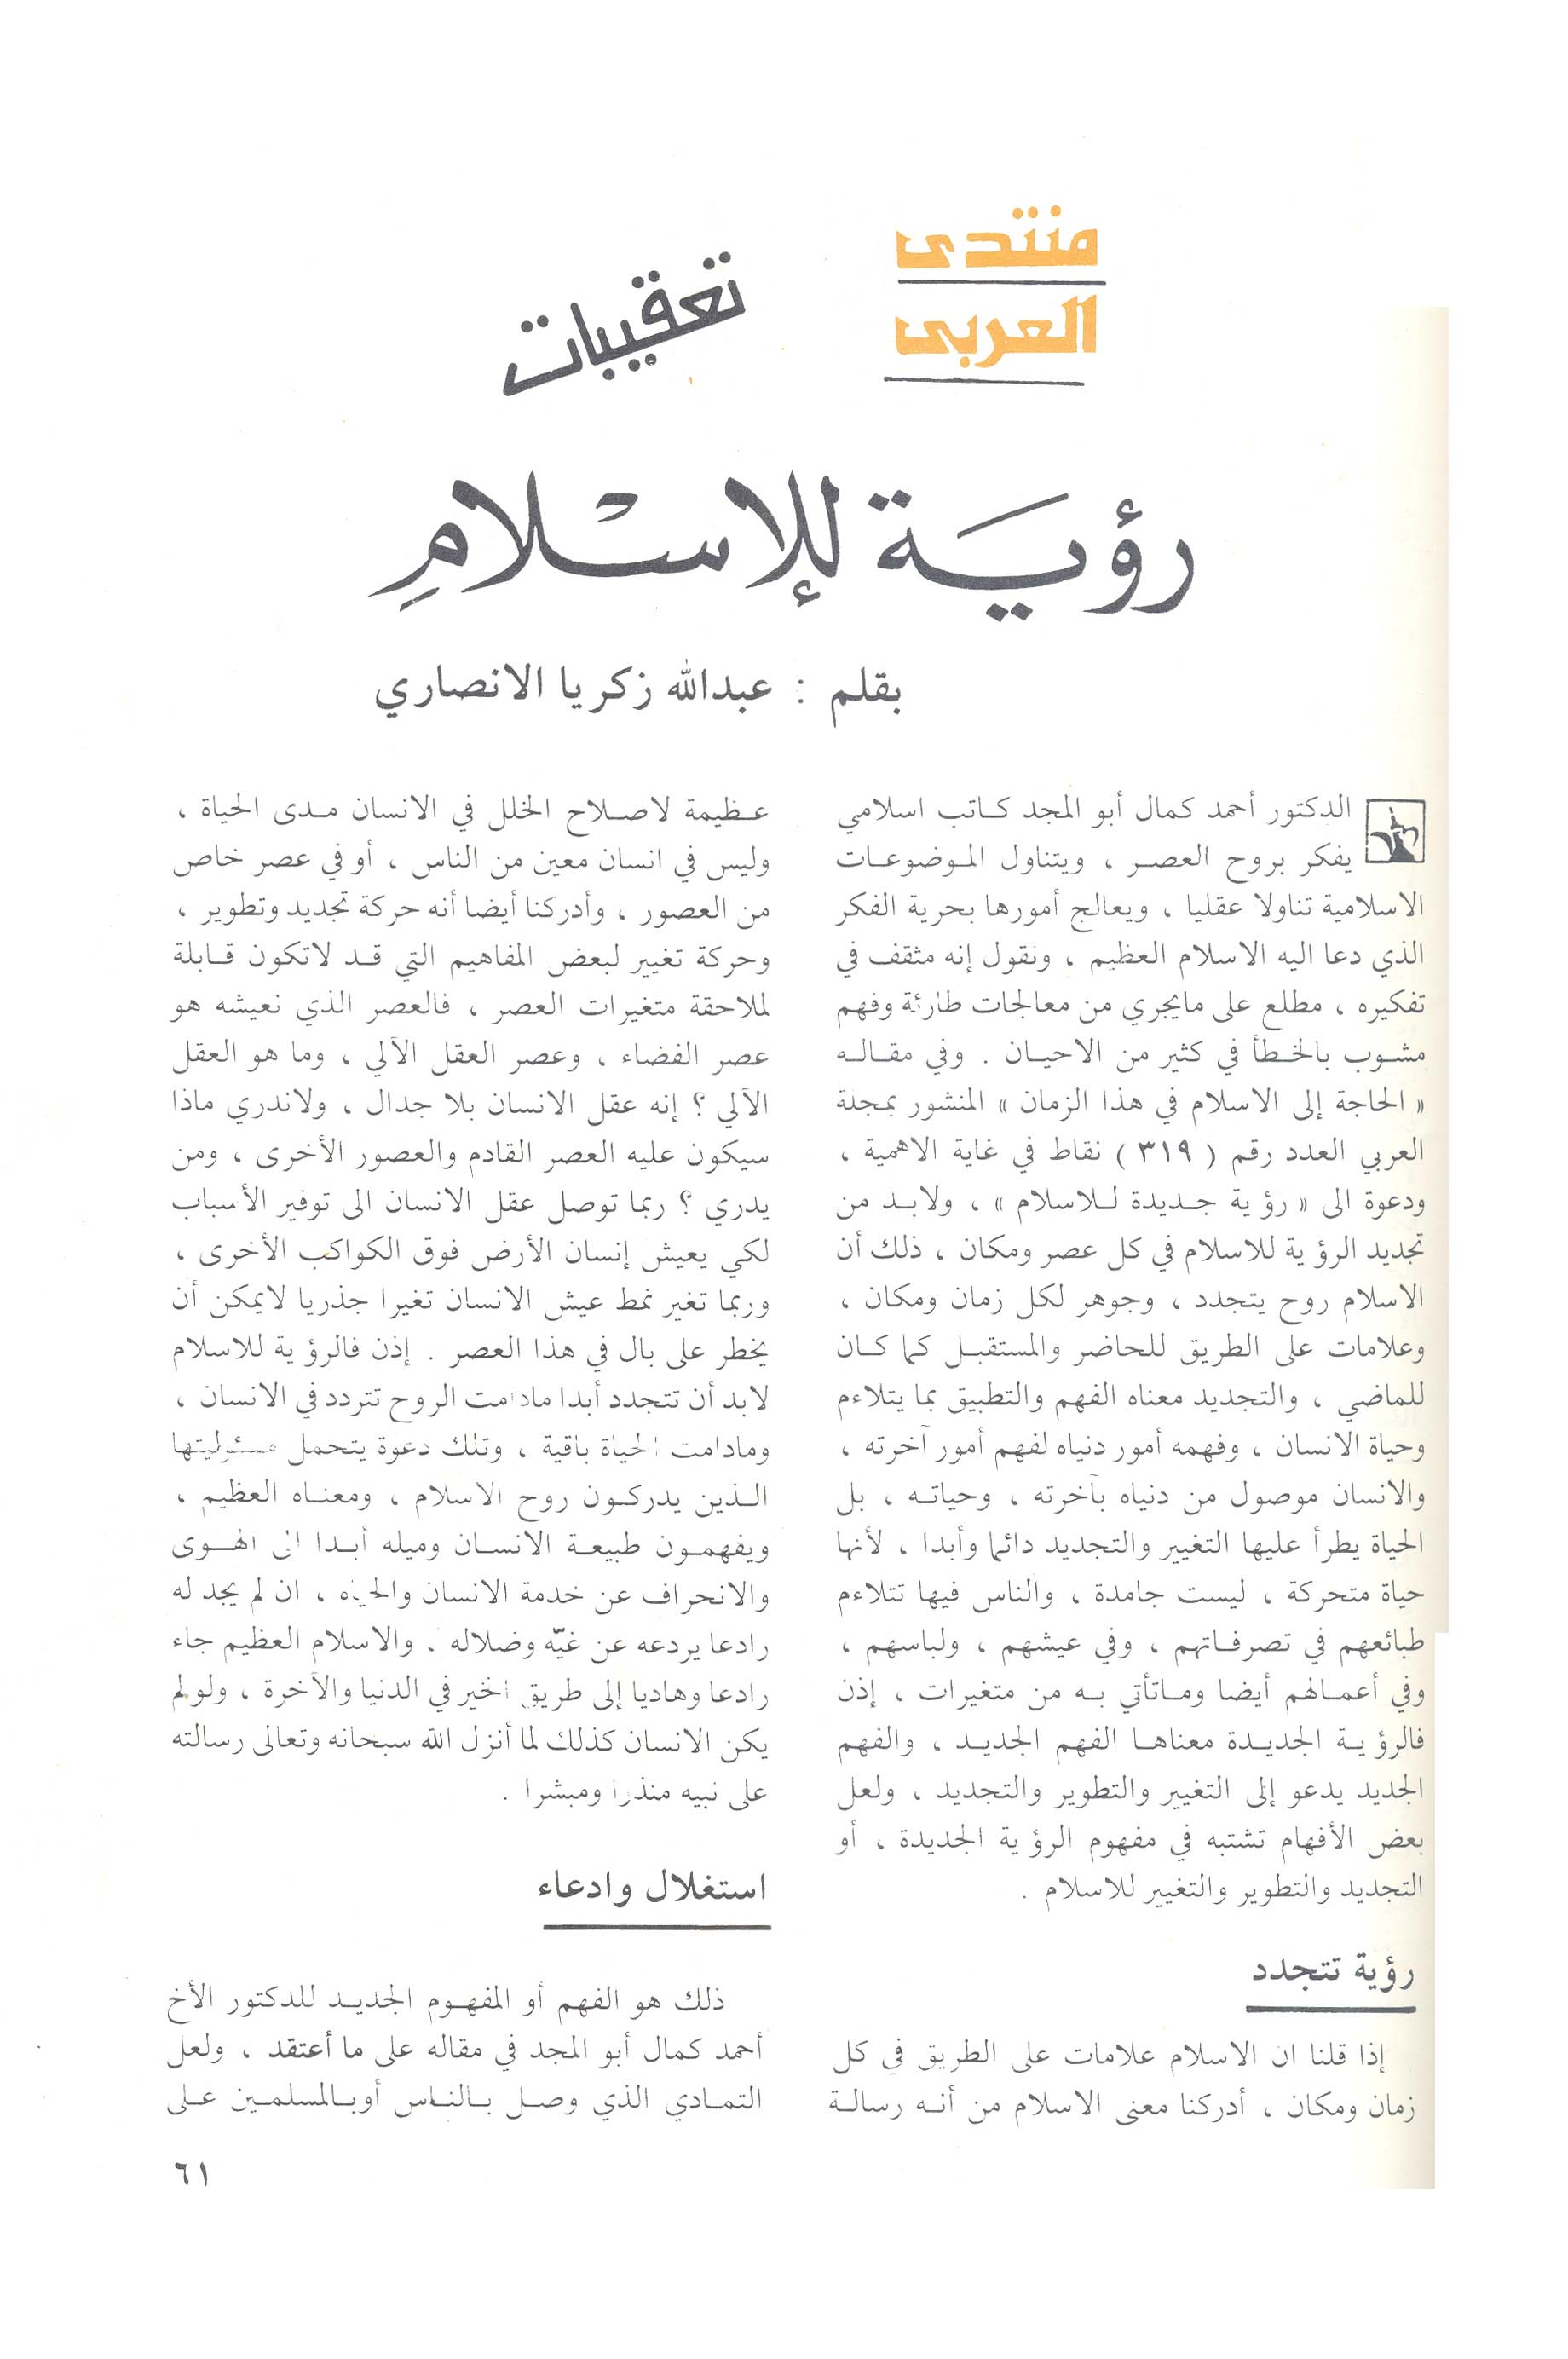 منتدى
العربي
تعقيبات
رؤيَة للإسْلامِ
بقلم : عبدالله زكريا الانصاري
الدكتور أحمد كمال أبو المجد كاتب اسلامي
يفكر بروح العصر ، ويتناول الموضوعات
الاسلامية تناولا عقليا ، ويعالج أمورها بحرية الفكر
الذي دعا اليه الاسلام العظيم ، ونقول إنه مثقف في
تفكيره ، مطلع على مايجري من معالجات طارئة وفهم
مشوب بالخطأ في كثير من الاحيان . وفي مقاله
« الحاجة إلى الاسلام في هذا الزمان » المنشور بمجلة
العربي العدد رقم ( ٣١٩ ) نقاط في غاية الاهمية ،
ودعوة الى « رؤية جديدة للاسلام » ، ولابد من
تجديد الرؤية للاسلام في كل عصر ومكان ، ذلك أن
الاسلام روح يتجدد ، وجوهر لكل زمان ومكان ،
وعلامات على الطريق للحاضر والمستقبل كما كان
للماضي ، والتجديد معناه الفهم والتطبيق بما يتلاءم
وحياة الانسان ، وفهمه أمور دنياه لفهم أمور آخرته ،
والانسان موصول من دنياه بآخرته ، وحياته ، بل
الحياة يطرأ عليها التغيير والتجديد دائما وأبدا ، لأنها
حياة متحركة ، ليست جامدة ، والناس فيها تتلاءم
طبائعهم في تصرفاتهم ، وفي عيشهم ، ولباسهم ،
وفي أعمالهم أيضا وماتأتي به من متغيرات ، إذن
فالرؤية الجديدة معناها الفهم الجديد ، والفهم
الجديد يدعو إلى التغيير والتطوير والتجديد ، ولعل
بعض الأفهام تشتبه في مفهوم الرؤية الجديدة ، أو
التجديد والتطوير والتغيير للاسلام .
رؤية تتجدد
إذا قلنا ان الاسلام علامات على الطريق في كل
زمان ومكان ، أدركنا معنى الاسلام من أنه رسالة
عظيمة لاصلاح الخلل في الانسان مدى الحياة ،
وليس في انسان معين من الناس ، أو في عصر خاص
من العصور ، وأدركنا أيضا أنه حركة تجديد وتطوير ،
وحركة تغيير لبعض المفاهيم التي قد لاتكون قابلة
لملاحقة متغيرات العصر ، فالعصر الذي نعيشه هو
عصر الفضاء ، وعصر العقل الآلي ، وما هو العقل
الآلي ؟ إنه عقل الانسان بلا جدال ، ولاندري ماذا
سيكون عليه العصر القادم والعصور الأخرى ، ومن
يدري ؟ ربما توصل عقل الانسان الى توفير الأسباب
لكي يعيش إنسان الأرض فوق الكواكب الأخرى ،
وربما تغير نمط عيش الانسان تغيرا جذريا لايمكن أن
يخطر على بال في هذا العصر . إذن فالرؤية للاسلام
لابد أن تتجدد أبدا مادامت الروح تتردد في الانسان ،
ومادامت الحياة باقية ، وتلك دعوة يتحمل مسئوليتها
الذين يدركون روح الاسلام ، ومعناه العظيم ،
ويفهمون طبيعة الانسان وميله أبدا الى الهوى
والانحراف عن خدمة الانسان والحياة ، ان لم يجد له
رادعا يردعه عن غيّه وضلاله . والاسلام العظيم جاء
رادعا وهاديا إلى طريق الخير في الدنيا والآخرة ، ولو لم
يكن الانسان كذلك لما أنزل الله سبحانه وتعالى رسالته
على نبيه منذرا ومبشرا .
استغلال وادعاء
ذلك هو الفهم أو المفهوم الجديد للدكتور الأخ
أحمد كمال أبو المجد في مقاله على ما أعتقد ، ولعل
التمادي الذي وصل بالناس أوبالمسلمين على
٦١